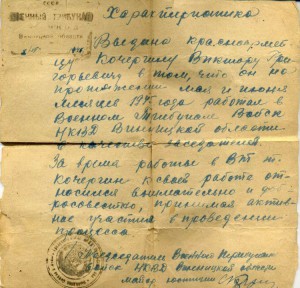 СССР
ВОЕННЫЙ ТРИБУНАЛ
Винницкой области
Характеристика.
Выдана красноармей-
цу Кочергину Виктору Гри-
горьевичу в том, что он на
протяжении мая и июня
месяцев 194 года работал в
Военном Трибунале Войск
НКВД Винницкой области
в качестве заседателя.
За время работы в ВТ т.
Кочергин к своей работе от-
носился внимательно и доб-
росовестно, принимая актив-
ное участие в проведении
процесса.
Председатель Военного Трибунала
Войск НКВД Винницкой области
майор юстиции